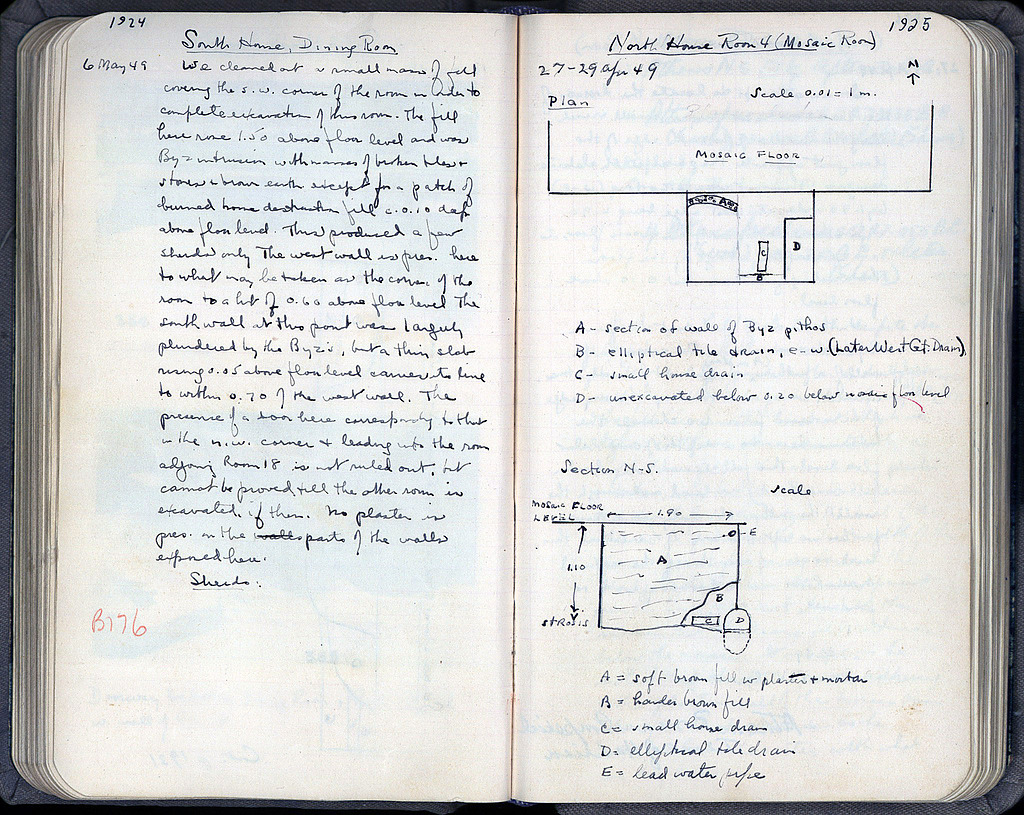 1924
South House, Dining Room
6 May 49 We cleaned out a small mass of fill
covering the s.w. corner of the room in order to
complete excavation of this room. The fill
here rose 1.50 above floor level and was
Byz intrusion with masses of broken tiles +
stones + brown earth except for a patch of
burned house destruction fill c. 0.10 deep
above floor level. This produced a few
sherds only. The west wall is pres. here
to what may be taken as the corner of the
room to a ht of 0.60 above floor level. The
south wall at this point was largely
plundered by the Byz's, but a thin slab
rising 0.05 above floor level carries the line
to within 0.70 of the west wall. The
presence of a door here corresponding to that
in the n.w. corner + leading into the room
adjoing Room 18 is not ruled out, but
cannot be proved till the other room is
excavated, if then. No plaster is
pres. on the walls parts of the walls
exposed here.
Sherds:
B176
1925
North House Room 4 (Mosaic Room)
27-29 Apr 49
N
Plan
Scale 0.01 = 1 m.
MOSAIC FLOOR
A
C
D
B
A - section of wall of Byz pithos
B - elliptical tile drain, e-w. (Later West Ct. Drain)
C - small house drain
D - unexcavated below 0.20 below mosaic floor level
Section N-S.
Scale
MOSAIC FLOOR
LEVEL
1.90
E
A
1.10
B
C
D
STROSIS
A = soft brown fill w plaster + mortar
B = harder brown fill
C = small house drain
D = elliptical tile drain
E = lead water pipe